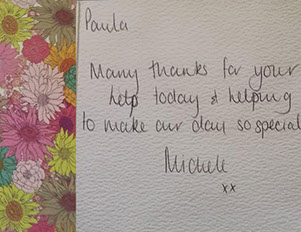 Paula
Many thanks for your
help today & helping
to make our day so special
Michele
xx